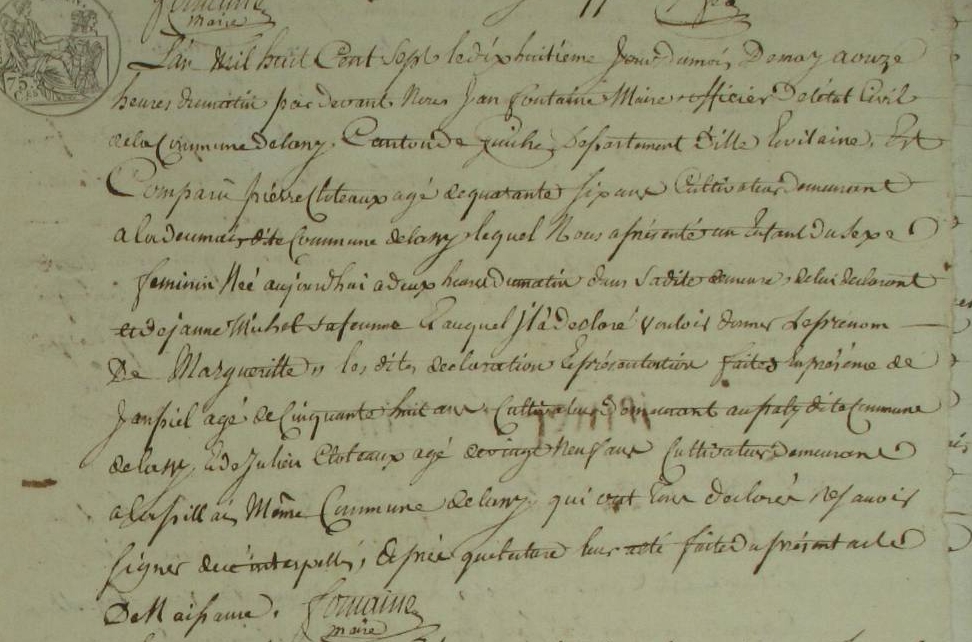 fontaine
maire
L'an mil huit Cent Sept le dix huitieme Jour du mois De may a onze
heures du matin par devant Nous Jan fontaine Maire officier De l'état Civil
de la Commune de lassy Canton de Guiche Departement D'ille Evilaine, Est
Comparû pierre Cloteaux agé de quarante six ans Cultivateur demeurant
a la dite Commune de lassy lequel Nous a présenté un Enfant du Sexe
feminin Née aujourd'hui a deux heures du matin dans sa dite demeure de lui declarant
et de janne Michel sa femme Et auquel Il a declaré vouloir donner Le prenom
De Margueritte les dites declaration Et présentation faites En présence de
Jan piel agé de Cinquante huit ans Cultivateur Demeurant au dite Commune
de lassy Et de Julien Cloteaux agé de vingt Neuf ans Cultivateur demeurant
a Même Commune de lassy qui ont Tous declaré Ne savoir
signer de ce interpellés, apres que lecture leur a été faite Du présent acte
De Naissance. fontaine
maire